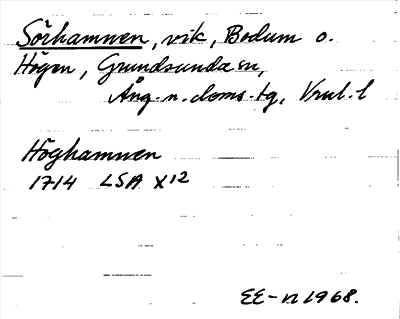 Sörhamnen, vik, Bodum o.
Högen, Grundsunda sn,
Ång. n. doms. tg, Vnl. l
Höghamnen
1714 LSA X12
EE-n 1968.